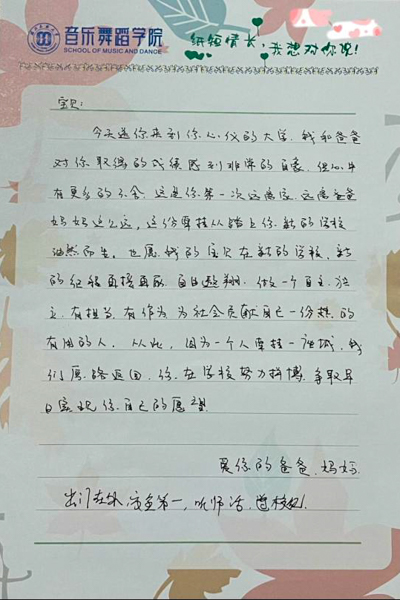 音乐舞蹈学院
SCHOOL OF MUSIC AND DANCE
纸短情长,我想对你说!
宝贝:
今天送你来到你心仪的大学,我和爸爸
对你取得的成绩感到非常的自豪,但心中
有更多的不舍,这是你第一次远离家,远离爸爸
妈妈这么远,这份牵挂从踏上你新的学校
油然而生。也愿我的宝贝在新的学校,新
的征程再接再厉,自由翱翔,做一个自立,独
立,有担当,有作为,为社会贡献自己一份热的
有用的人。从此,因为一个人牵挂一座城,我
们原路返回,你在学校努力拼搏,争取早
日实现你自己的愿望
爱你的爸爸,妈妈.
出门在外,安全第一,听师话,遵校纪!